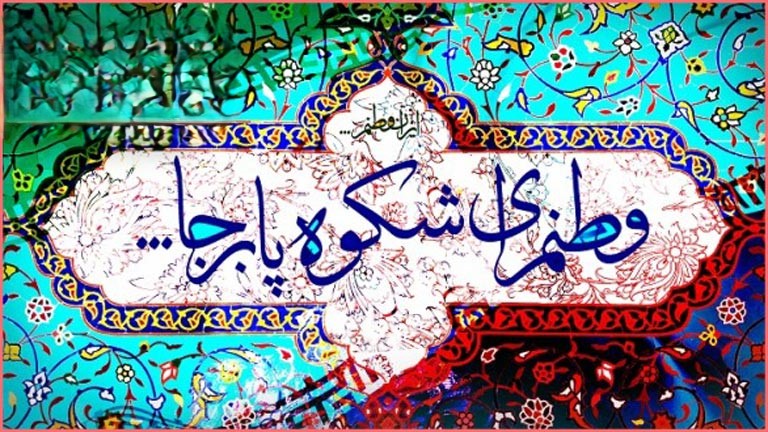 ایران وطنم ...
وطنم ای شکوه پابرجا ...